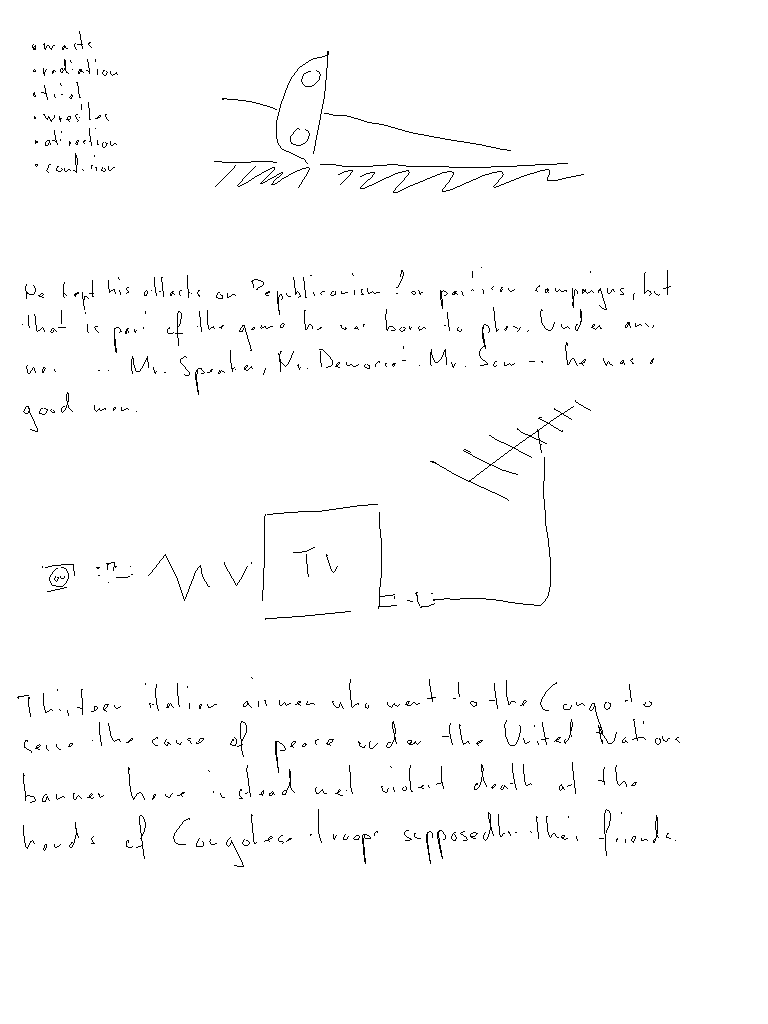 • waste
• radiation
• trial
• wrestles
• attraction
• condition
He kept his attacks on Republicanism for partisan campaigns, but
that is part of the game he was born to play. Under any
name -- Mr. Speaker, Mr. Democrat, Mr. Sam -- he was a
good man.
TV
Thirteen italian airmen who went to the Congo to
serve the cause of peace under the United Nations
banner have instead met violent death at the
hands of Congolese troops supposedly their friends.